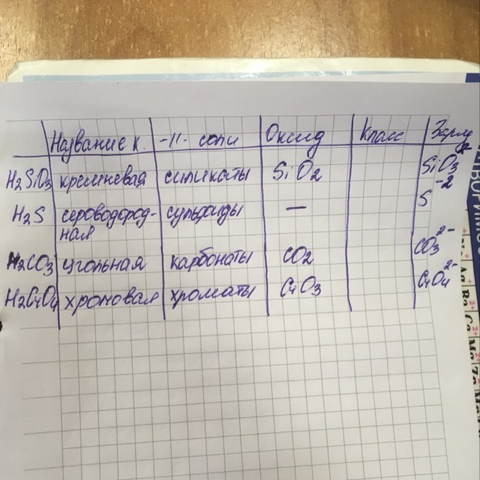 Название к. -11- соли Оксид Класс Заряд
H2SiO3 кремневая силикаты SiO2 SiO3 2-
H2S сероводород- сульфиды — S -2
ная
H2CO3 угольная карбонаты CO2 CO3 2-
H2CrO4 хромовая хроматы CrO3 CrO4 2-